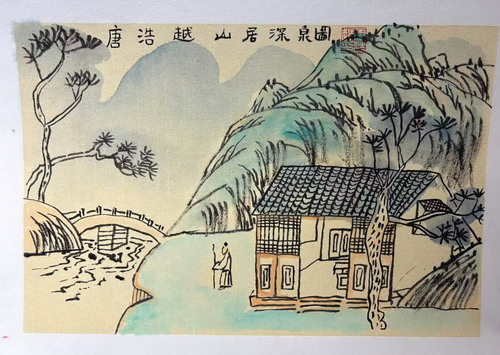 唐浩越 山居深泉圖